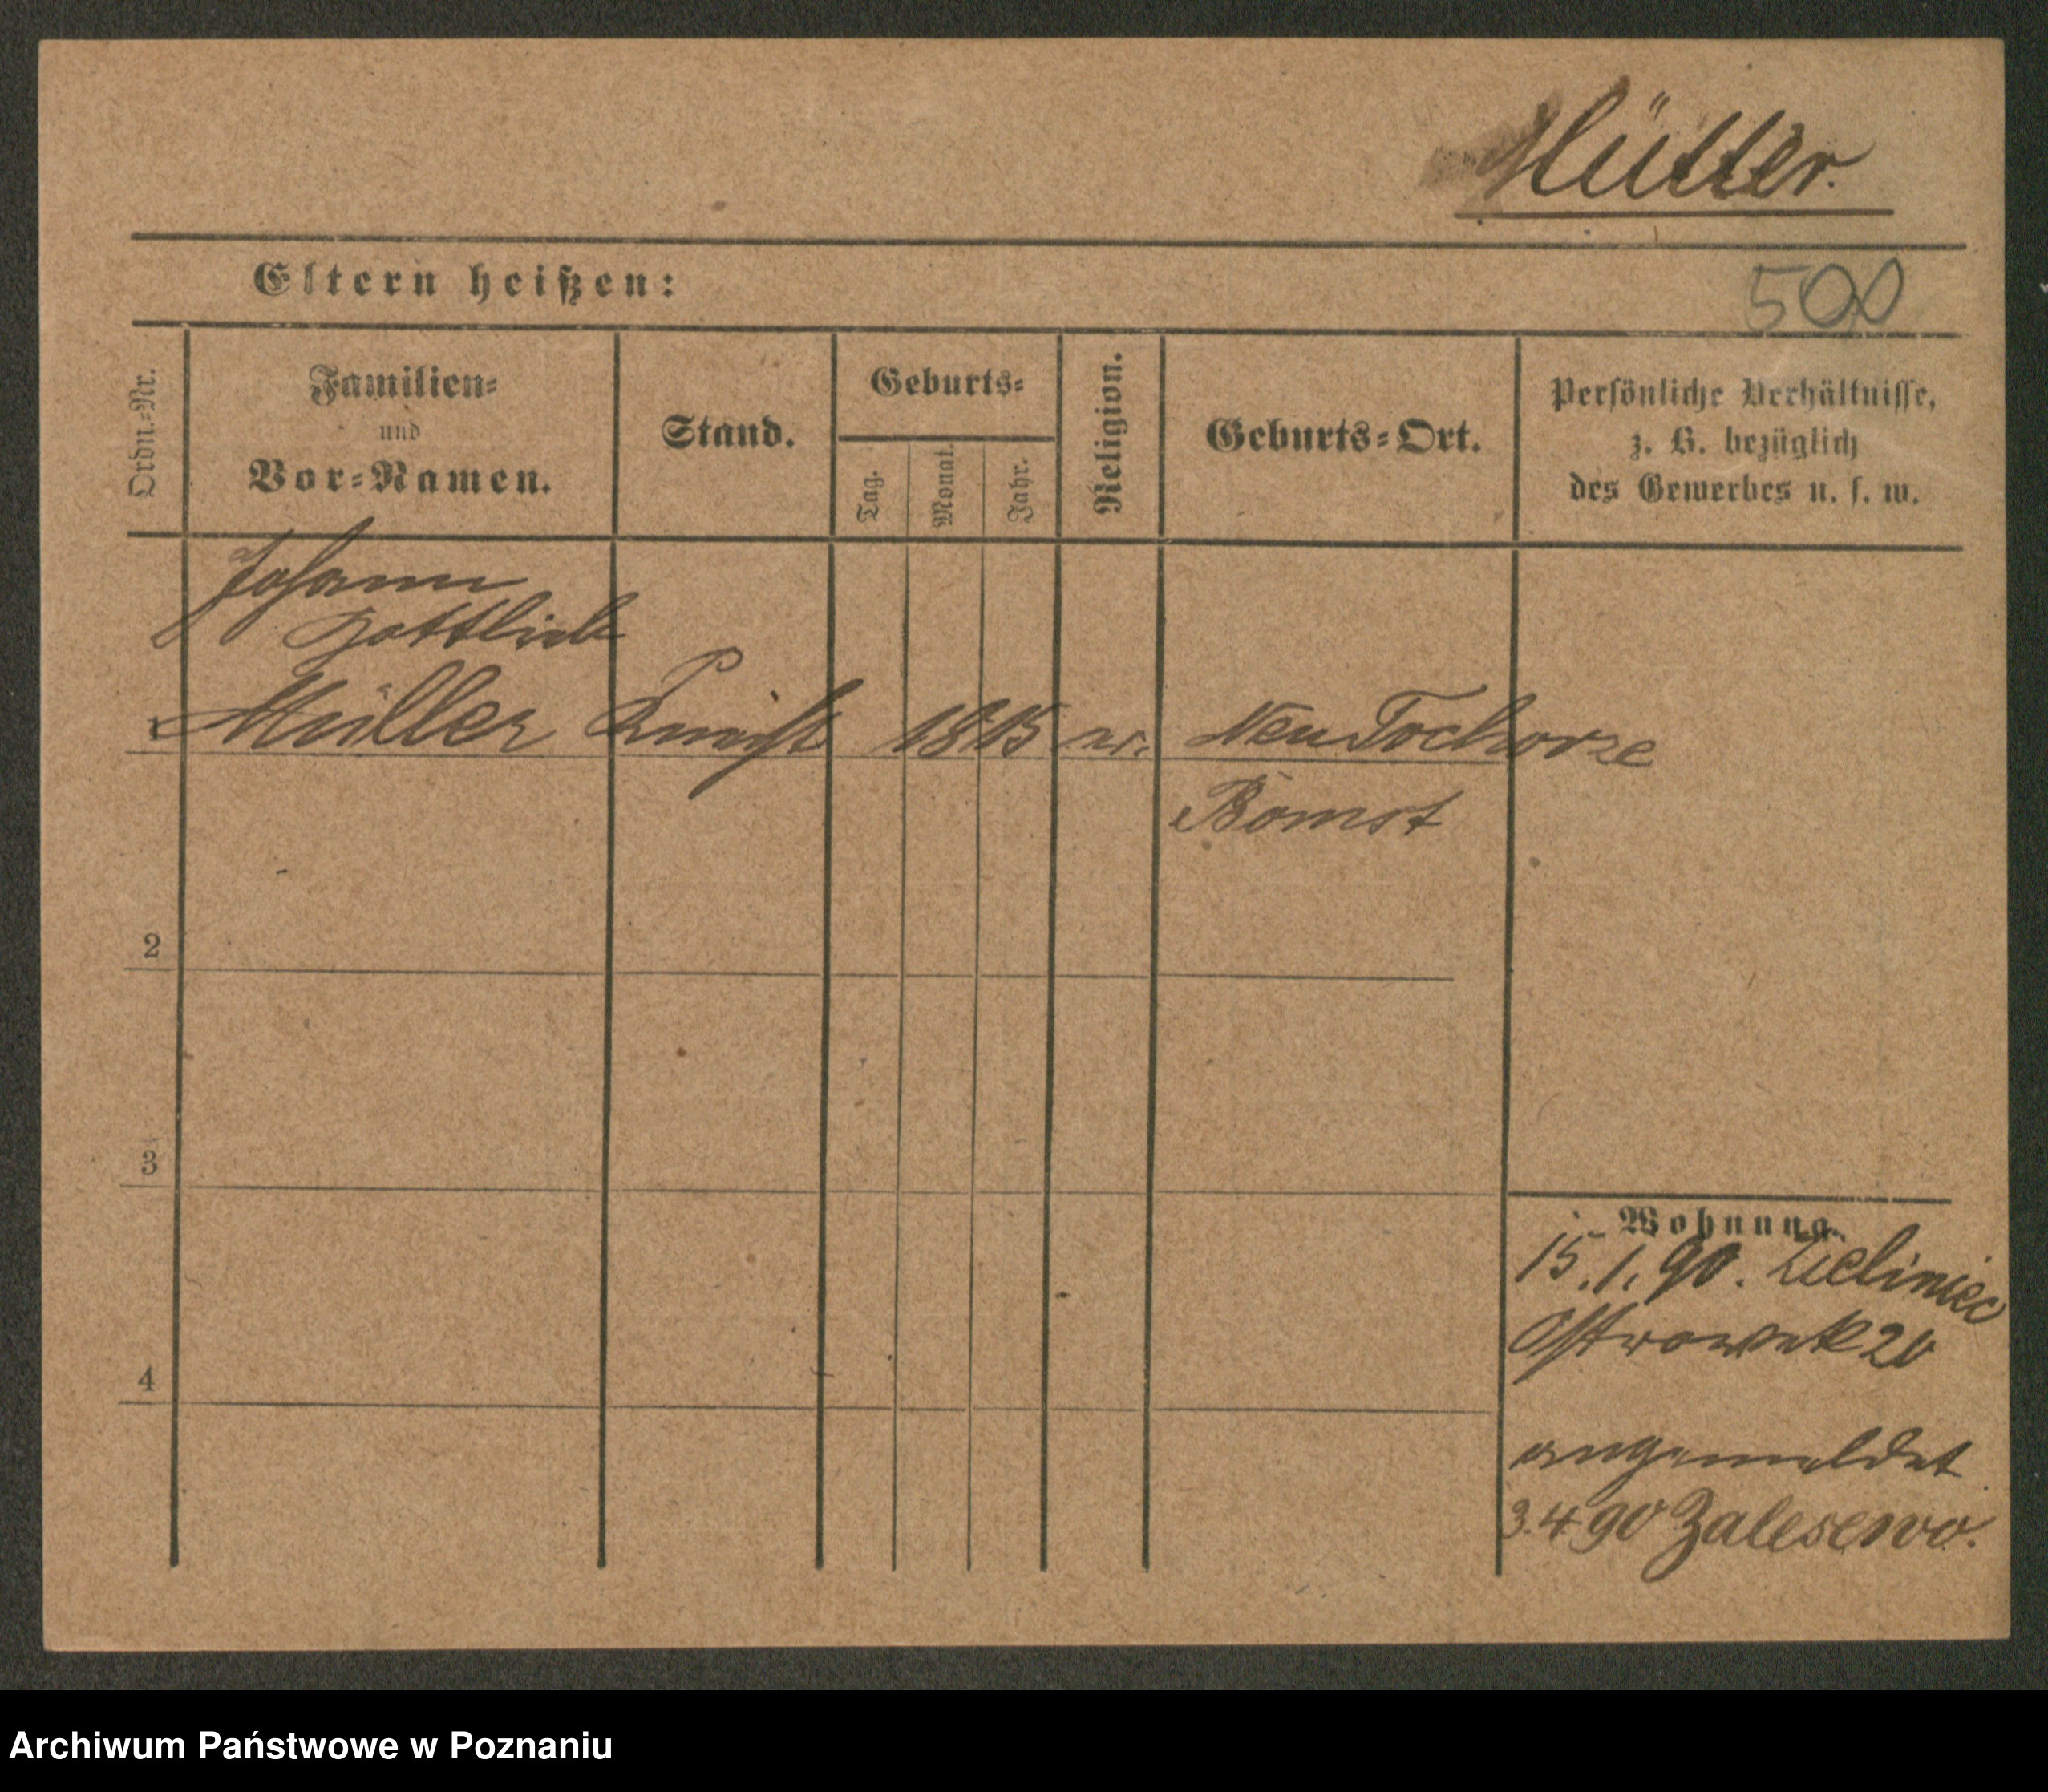 Müller.
Eltern heißen:
500
Ordn.-Nr.
Familien-
und
Vor-Namen.
Stand.
Geburts-
Tag.
Monat.
Jahr.
Religion.
Geburts-Ort.
Persönliche Verhältnisse,
z. B. bezüglich
des Gewerbes u. s. w.
Johann
Gottlieb
1 Müller 1815 Neu Tochorze
Bomst
2
3
4
Wohnung.
15.1.90.
Ostrowek 20
angemeldet
3.4 90 Zalesewo.
Archiwum Państwowe w Poznaniu